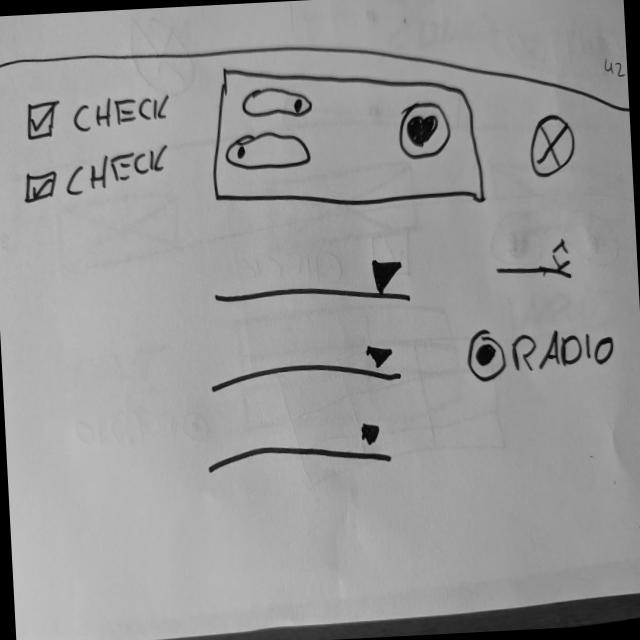 42
CHECK
CHECK
RADIO